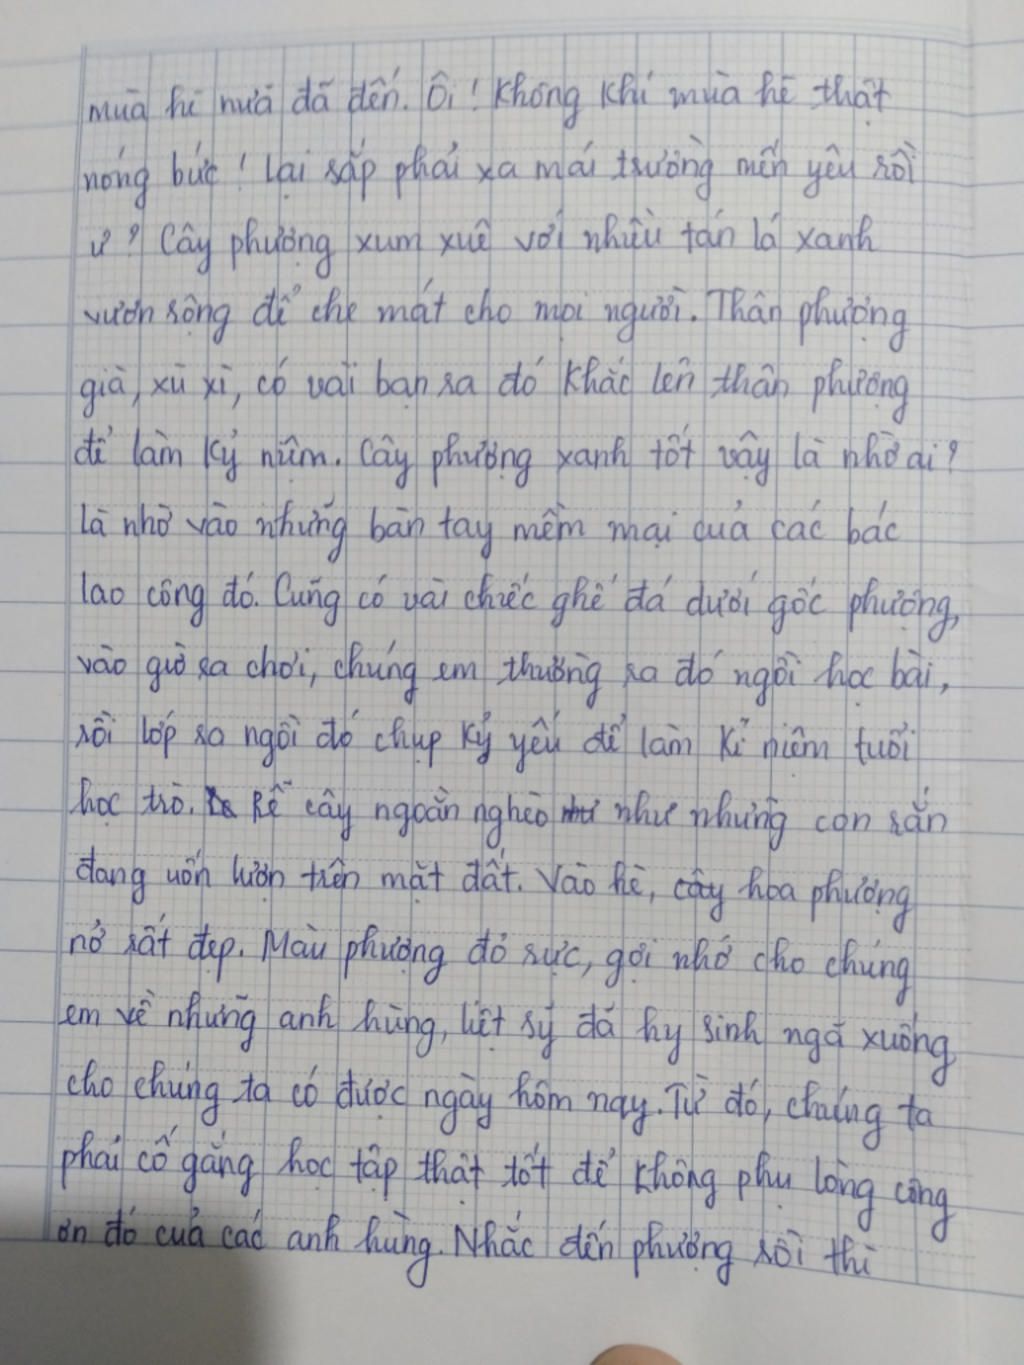 mùa hè nưã đã đến. Ôi! Không khí mùa hè thật
nóng bức! Lại sắp phải xa mái trường mến yêu rồi
ư? Cây phượng xum xuê với nhiều tán lá xanh
vươn rộng để che mát cho mọi người. Thân phượng
già, xù xì, có vài bạn ra đó khắc lên thân phượng
để làm kỷ niệm. Cây phượng xanh tốt vậy là nhờ ai?
Là nhờ vào những bàn tay mềm mại của các bác
lao công đó. Cũng có vài chiếc ghế đá dưới gốc phượng,
vào giờ ra chơi, chúng em thường ra đó ngồi học bài,
rồi lớp ra ngồi đó chụp kỷ yếu để làm kỉ niệm tuổi
học trò. Rễ cây ngoằn nghèo như những con rắn
đang uốn lượn trên mặt đất. Vào hè, cây hoa phượng
nở rất đẹp. Màu phượng đỏ rực, gợi nhớ cho chúng
em về những anh hùng, liệt sỹ đã hy sinh ngã xuống
cho chúng ta có được ngày hôm nay. Từ đó, chúng ta
phải cố gắng học tập thật tốt để không phụ lòng công
ơn đó của các anh hùng. Nhắc đến phượng rồi thì